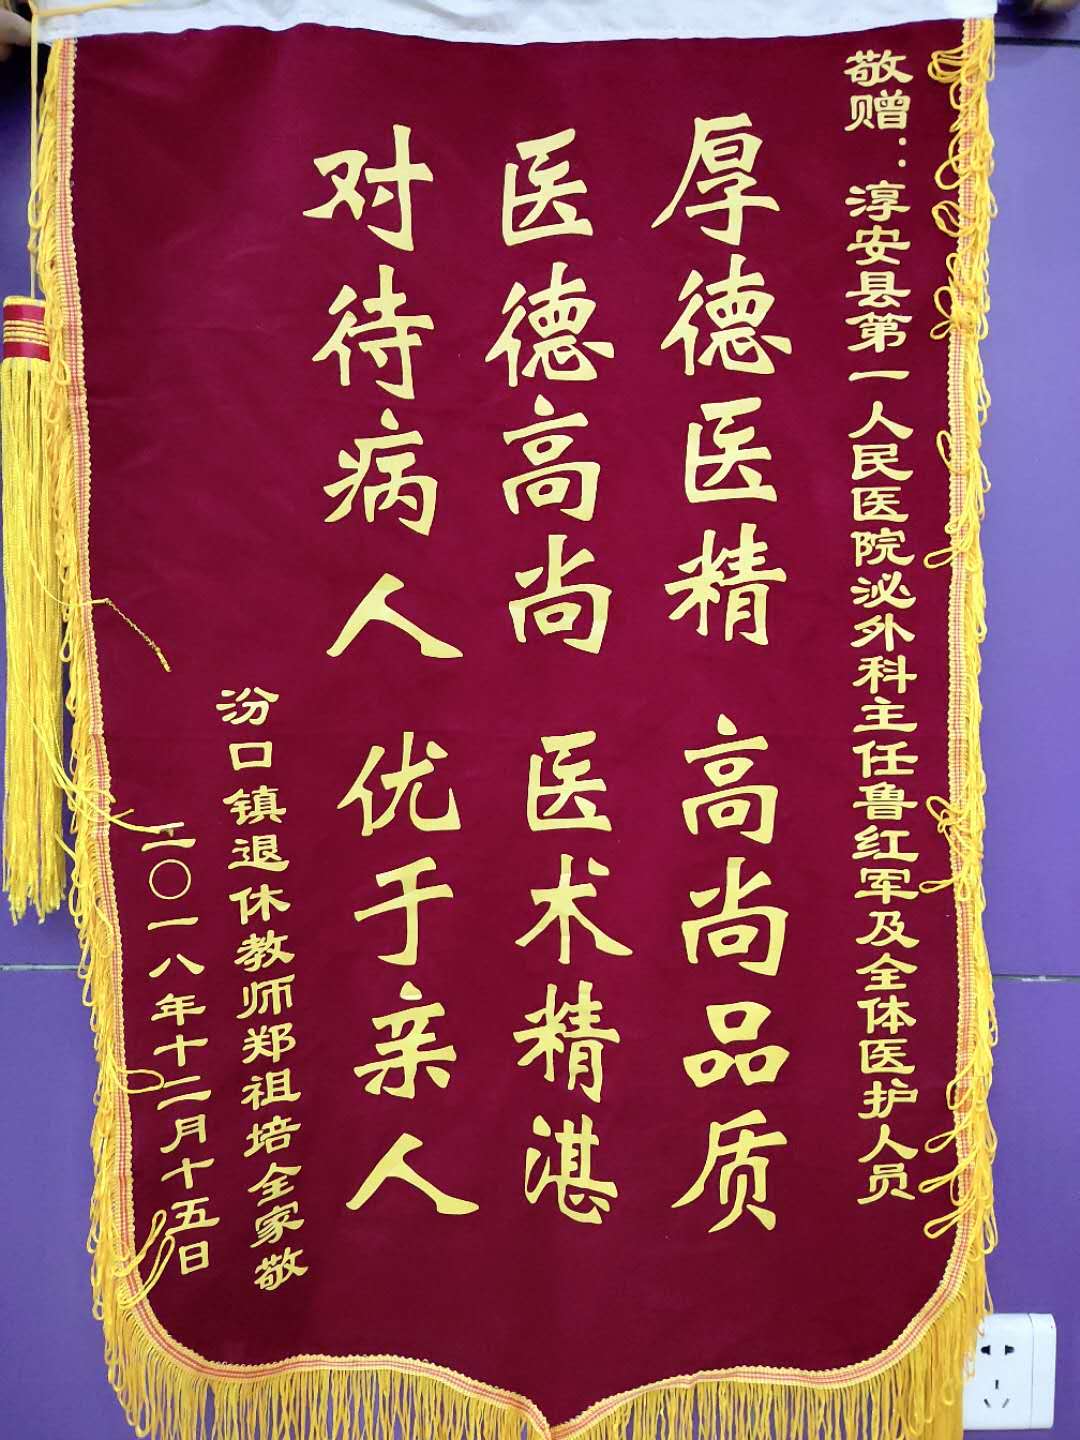 敬赠：淳安县第一人民医院泌外科主任鲁红军及全体医护人员
厚德医精 高尚品质
医德高尚 医术精湛
对待病人 优于亲人
汾口镇退休教师郑祖培全家敬
二〇一八年十二月十五日